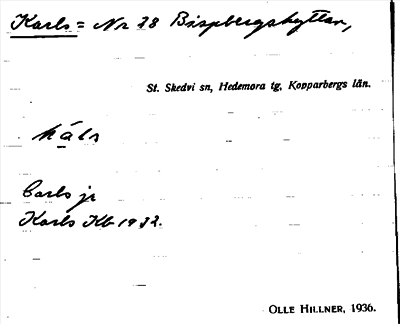 Karls = Nr 28 Bispbergshyttan,
St. Skedvi sn, Hedemora tg, Kopparbergs län.
kals
Carls jr
Karls Kb 1932.
OLLE HILLNER, 1936.